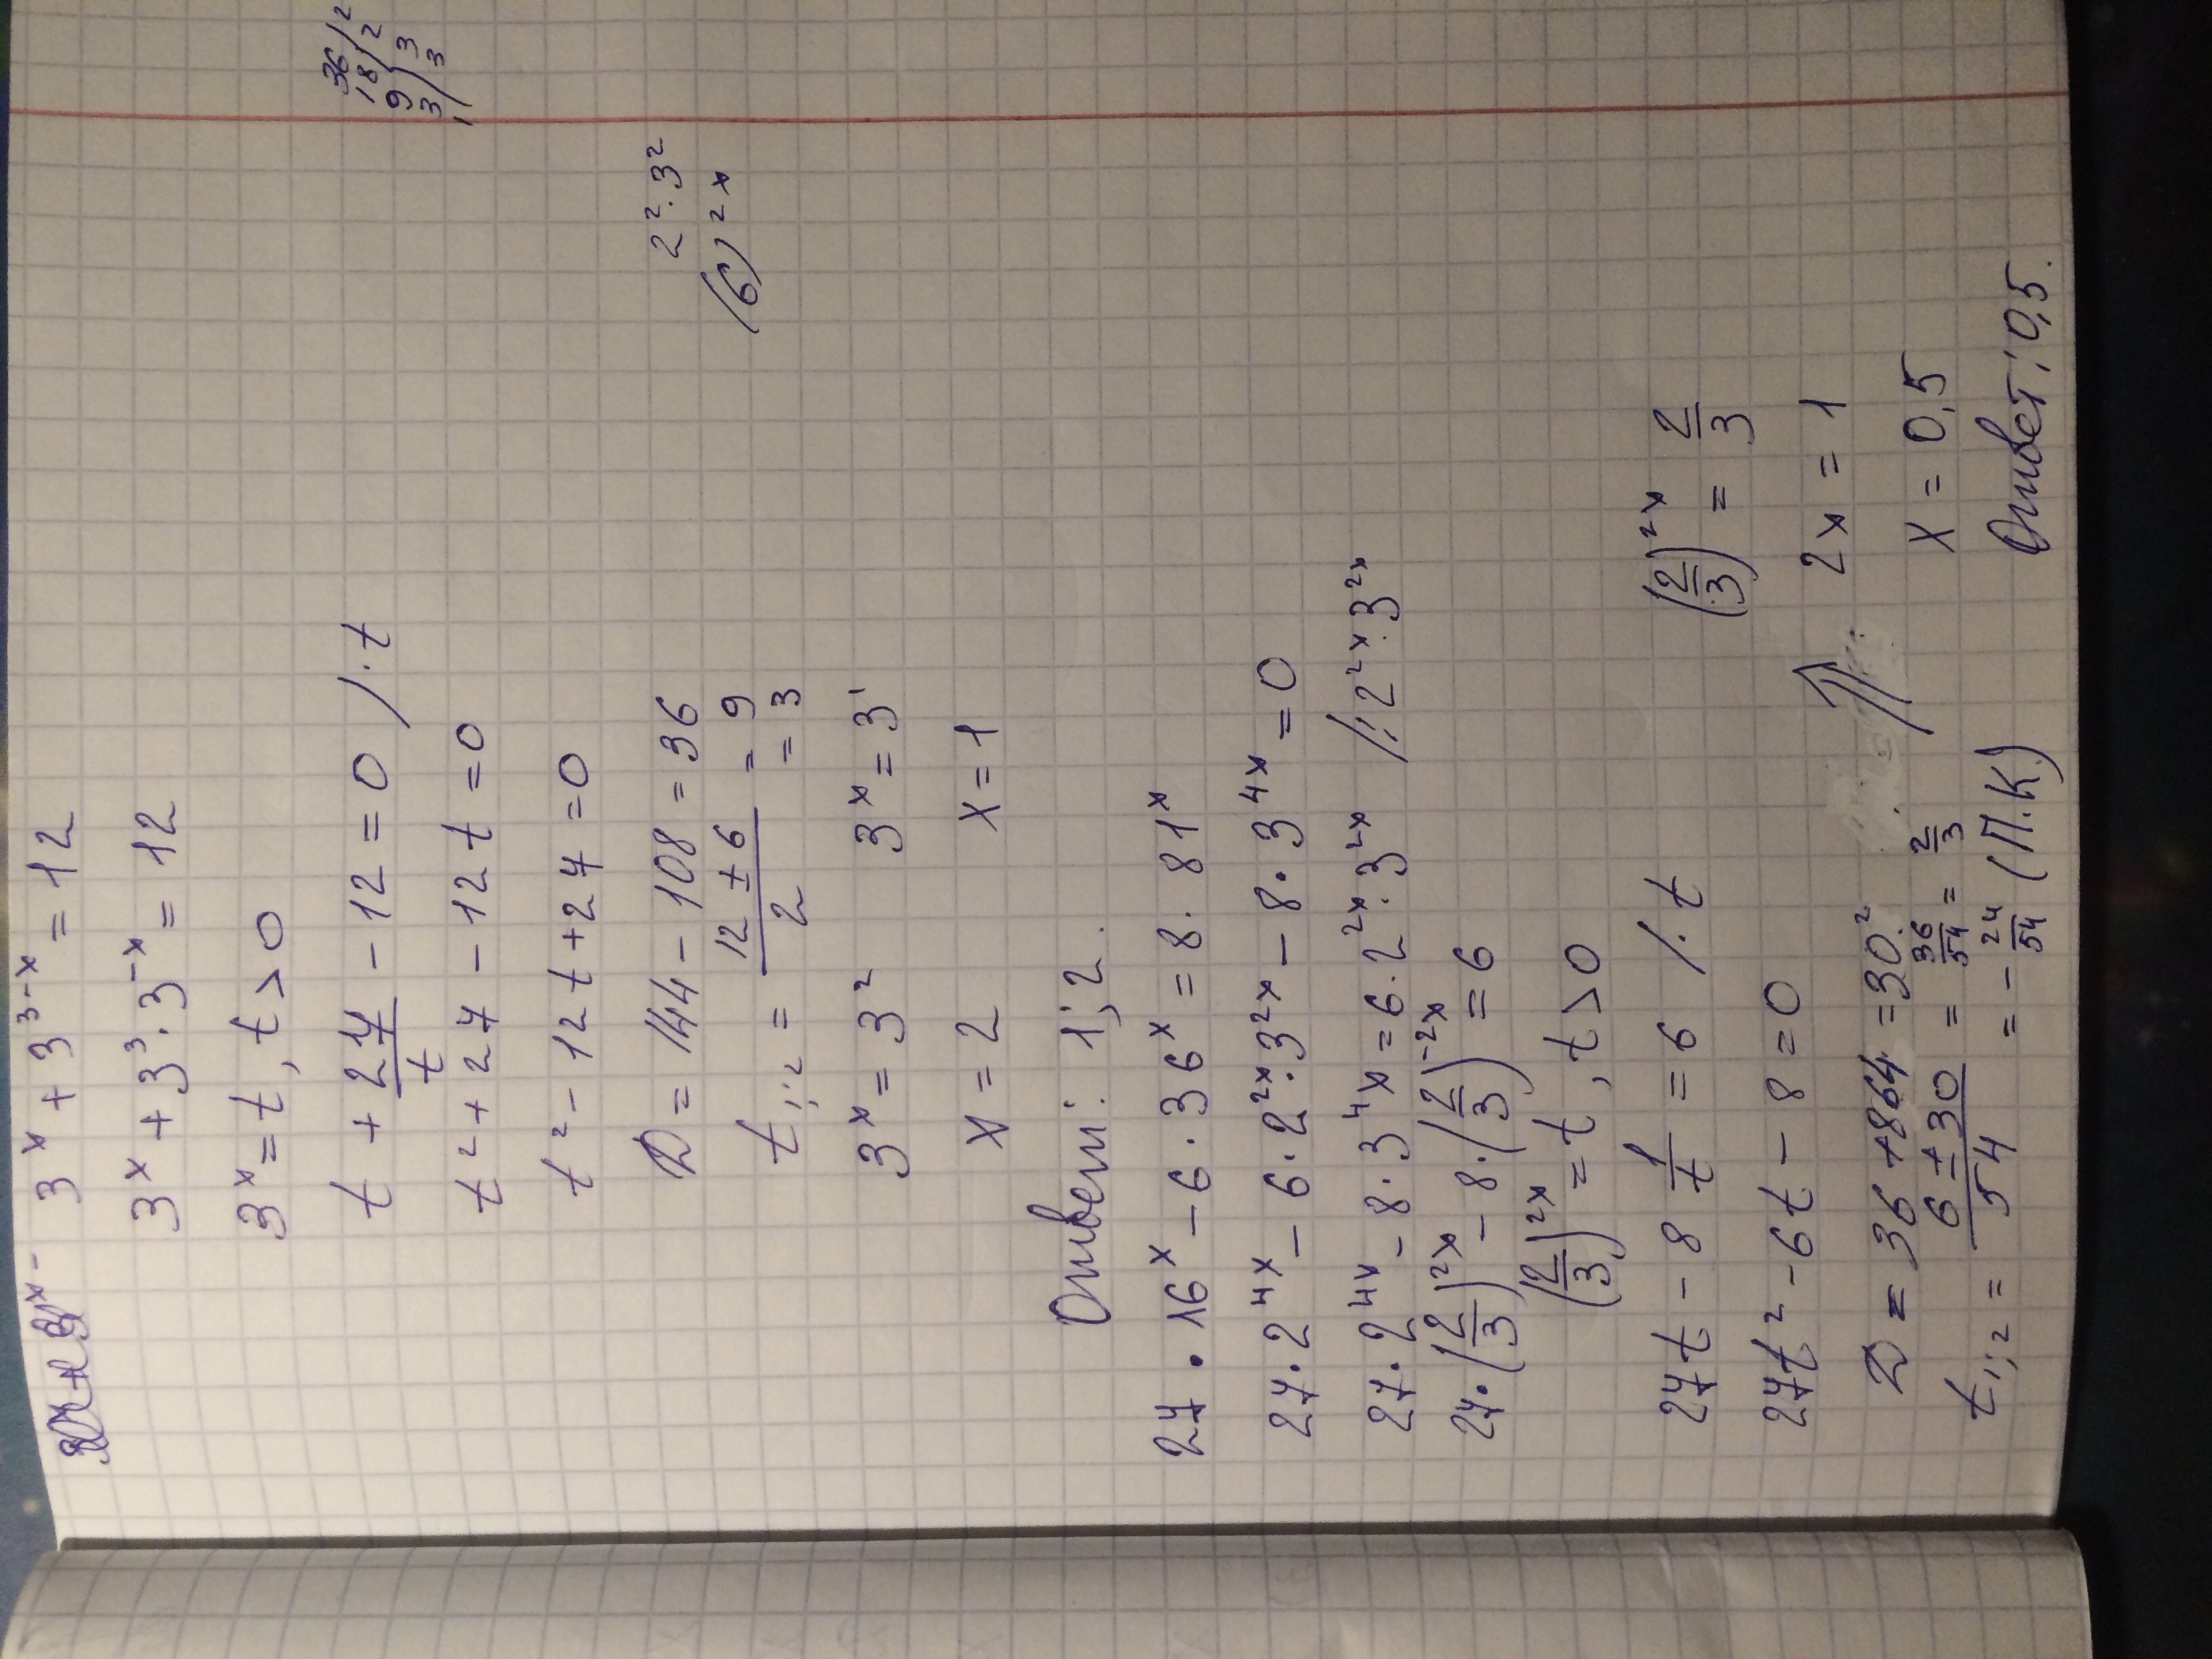 3ˣ + 3³⁻ˣ = 12
3ˣ + 3³ · 3⁻ˣ = 12
3ˣ = t, t > 0
t + 27/t - 12 = 0 /· t
t² + 27 - 12t = 0
t² - 12t + 27 = 0
D = 144 - 108 = 36
t₁;₂ = (12 ± 6)/2 = 9
= 3
3ˣ = 3² 3ˣ = 3¹
x = 2 x = 1
Ответ: 1; 2.
36 / 2
18 / 2
9 / 3
3 / 3
1
2² · 3²
(6)²ˣ
27 · 16ˣ - 6 · 36ˣ = 8 · 81ˣ
27 · 2⁴ˣ - 6 · 2²ˣ · 3²ˣ - 8 · 3⁴ˣ = 0
27 · 2⁴ˣ - 8 · 3⁴ˣ = 6 · 2²ˣ · 3²ˣ /: 2²ˣ · 3²ˣ
27 · (2/3)²ˣ - 8 · (2/3)⁻²ˣ = 6
(2/3)²ˣ = t, t > 0
27t - 8 1/t = 6 /· t
27t² - 6t - 8 = 0
D = 36 + 864 = 30²
t₁;₂ = (6 ± 30)/54 = 36/54 = 2/3
= - 24/54 (П.К)
(2/3)²ˣ = 2/3
2x = 1
x = 0,5
Ответ: 0,5.